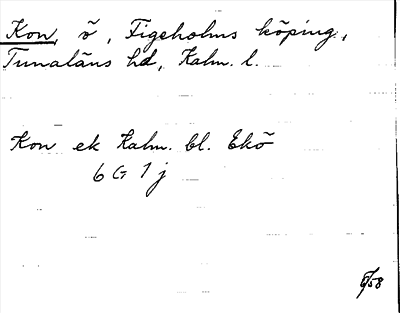 Kon, ö, Figeholms köping,
Tunaläns hd, Kalm. l.
Kon ek Kalm. bl. Ekö
6 G 1 j
/58